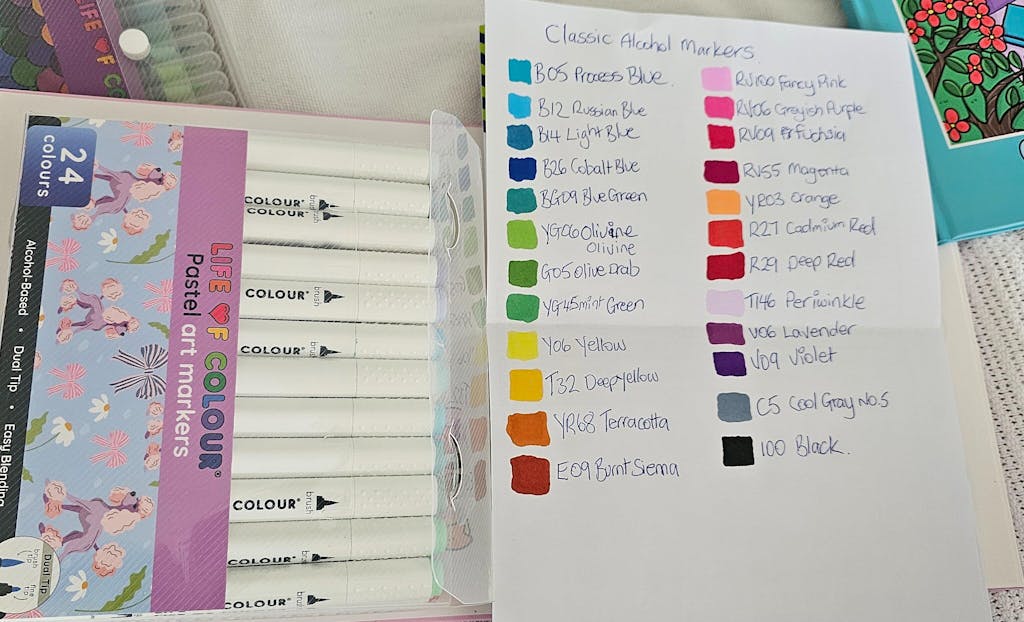 LIFE OF COLOUR
24
colours
Alcohol-Based • Dual Tip • Easy Blending
LIFE OF COLOUR®
Pastel art markers
Dual Tip
brush tip
fine tip
COLOUR® brush
COLOUR® brush
COLOUR® brush
COLOUR® brush
COLOUR® brush
COLOUR® brush
COLOUR® brush
Classic Alcohol Markers
B05 Process Blue.
B12 Russian Blue
B14 Light Blue
B26 Cobalt Blue
BG09 Blue Green
YG06 Olivine
Olivine
G05 Olive Drab
YG45 mint Green
Y06 Yellow
T32 Deep Yellow
YR68 Terracotta
E09 Burnt Siema
RV100 Fancy Pink
RV06 Greyish Purple
RV09 Fuchsia
RV55 Magenta
YR03 Orange
R27 Cadmium Red
R29 Deep Red
T146 Periwinkle
V06 Lavender
V09 Violet
C5 Cool Gray No.5
100 Black.